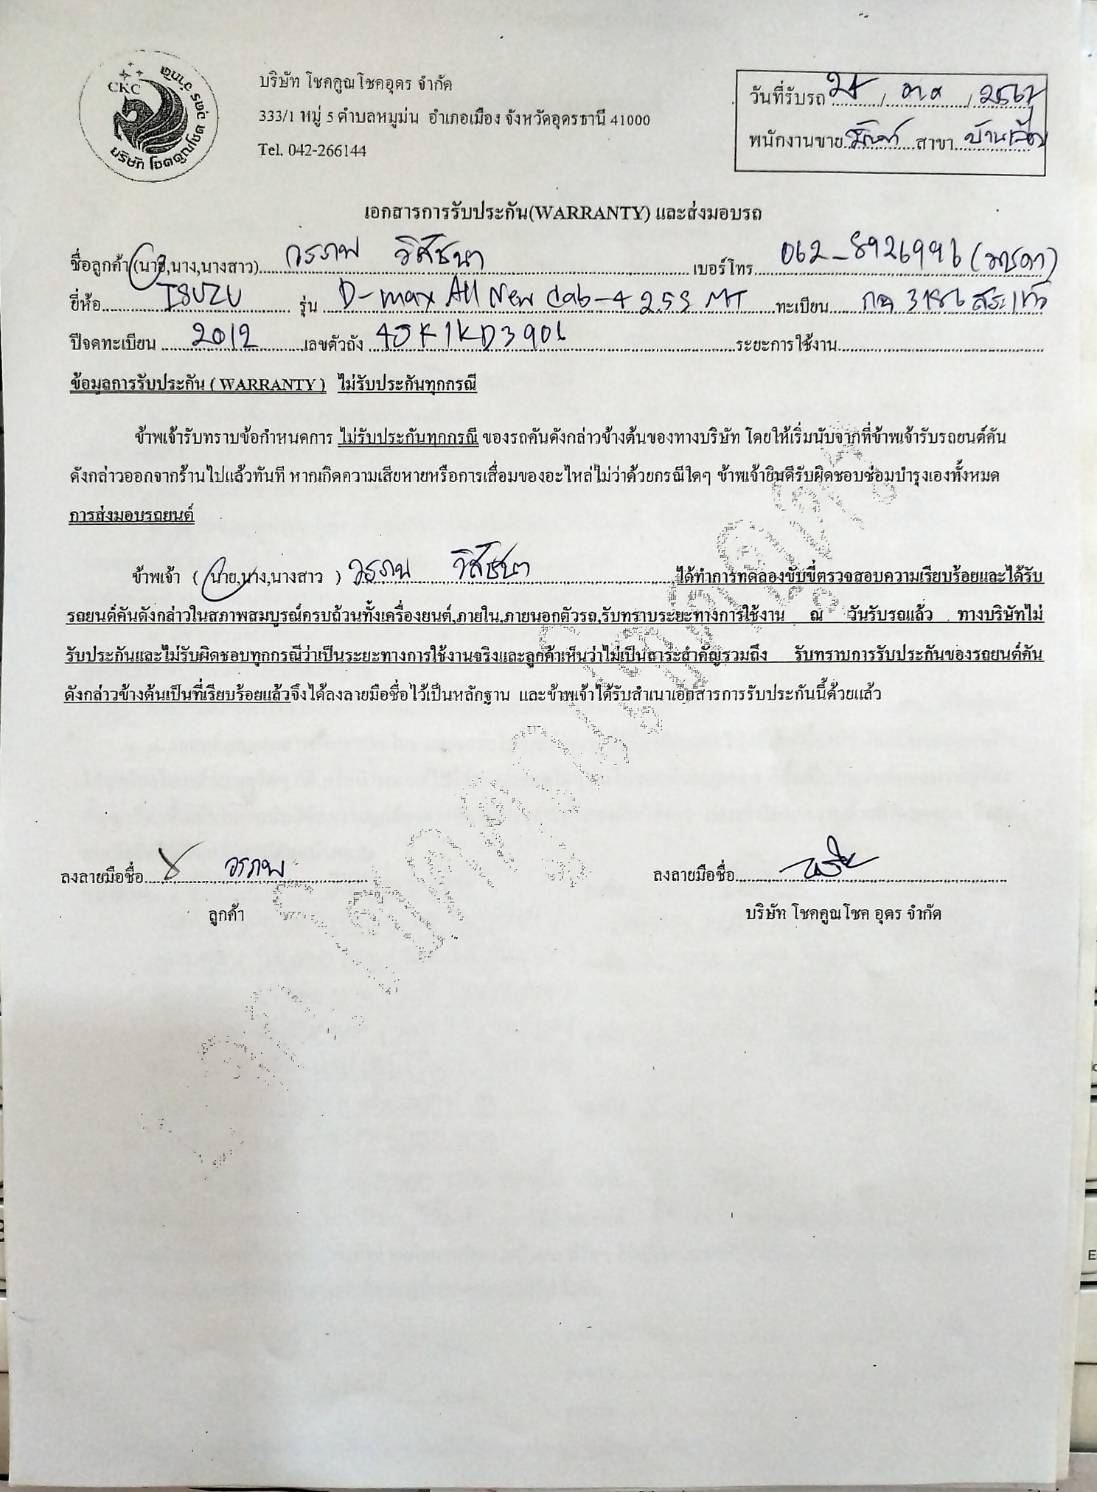 CKC
บริษัท โชคคูณโชค อุดร จำกัด
บริษัท โชคคูณโชคอุดร จำกัด
333/1 หมู่ 5 ตำบลหมูม่น อำเภอเมือง จังหวัดอุดรธานี 41000
Tel. 042-266144
วันที่รับรถ / / 2567
พนักงานขาย สาขา
เอกสารการรับประกัน(WARRANTY) และส่งมอบรถ
ชื่อลูกค้า (นาย,นาง,นางสาว) วรภพ วิสัชนา เบอร์โทร 062-8926996
ยี่ห้อ ISUZU รุ่น D-max All New cab-4 2.5S MT ทะเบียน 3186 สระแก้ว
ปีจดทะเบียน 2012 เลขตัวถัง ระยะการใช้งาน
ข้อมูลการรับประกัน ( WARRANTY ) ไม่รับประกันทุกกรณี
ข้าพเจ้ารับทราบข้อกำหนดการ ไม่รับประกันทุกกรณี ของรถคันดังกล่าวข้างต้นของทางบริษัท โดยให้เริ่มนับจากที่ข้าพเจ้ารับรถยนต์คัน
ดังกล่าวออกจากร้านไปแล้วทันที หากเกิดความเสียหายหรือการเสื่อมของอะไหล่ไม่ว่าด้วยกรณีใดๆ ข้าพเจ้ายินดีรับผิดชอบซ่อมบำรุงเองทั้งหมด
การส่งมอบรถยนต์
ข้าพเจ้า ( นาย,นาง,นางสาว ) วรภพ วิสัชนา ได้ทำการทดลองขับขี่ตรวจสอบความเรียบร้อยและได้รับ
รถยนต์คันดังกล่าวในสภาพสมบูรณ์ครบถ้วนทั้งเครื่องยนต์,ภายใน,ภายนอกตัวรถ,รับทราบระยะทางการใช้งาน ณ วันรับรถแล้ว ทางบริษัทไม่
รับประกันและไม่รับผิดชอบทุกกรณีว่าเป็นระยะทางการใช้งานจริงและลูกค้าเห็นว่าไม่เป็นสาระสำคัญรวมถึง รับทราบการรับประกันของรถยนต์คัน
ดังกล่าวข้างต้นเป็นที่เรียบร้อยแล้วจึงได้ลงลายมือชื่อไว้เป็นหลักฐาน และข้าพเจ้าได้รับสำเนาเอกสารการรับประกันนี้ด้วยแล้ว
ลงลายมือชื่อ วรภพ ลงลายมือชื่อ
ลูกค้า บริษัท โชคคูณโชค อุดร จำกัด